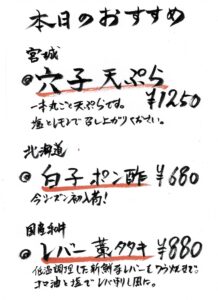 本日のおすすめ
宮城
穴子天ぷら ¥1250
一本丸ごと天ぷらです。
塩とレモンで召し上がりください。
北海道
白子ポン酢 ¥680
今シーズン初入荷!
国産和牛
レバー藁タタキ ¥880
低温調理した新鮮なレバーをワラ焼きで。
ゴマ油と塩でレバ刺し風に。